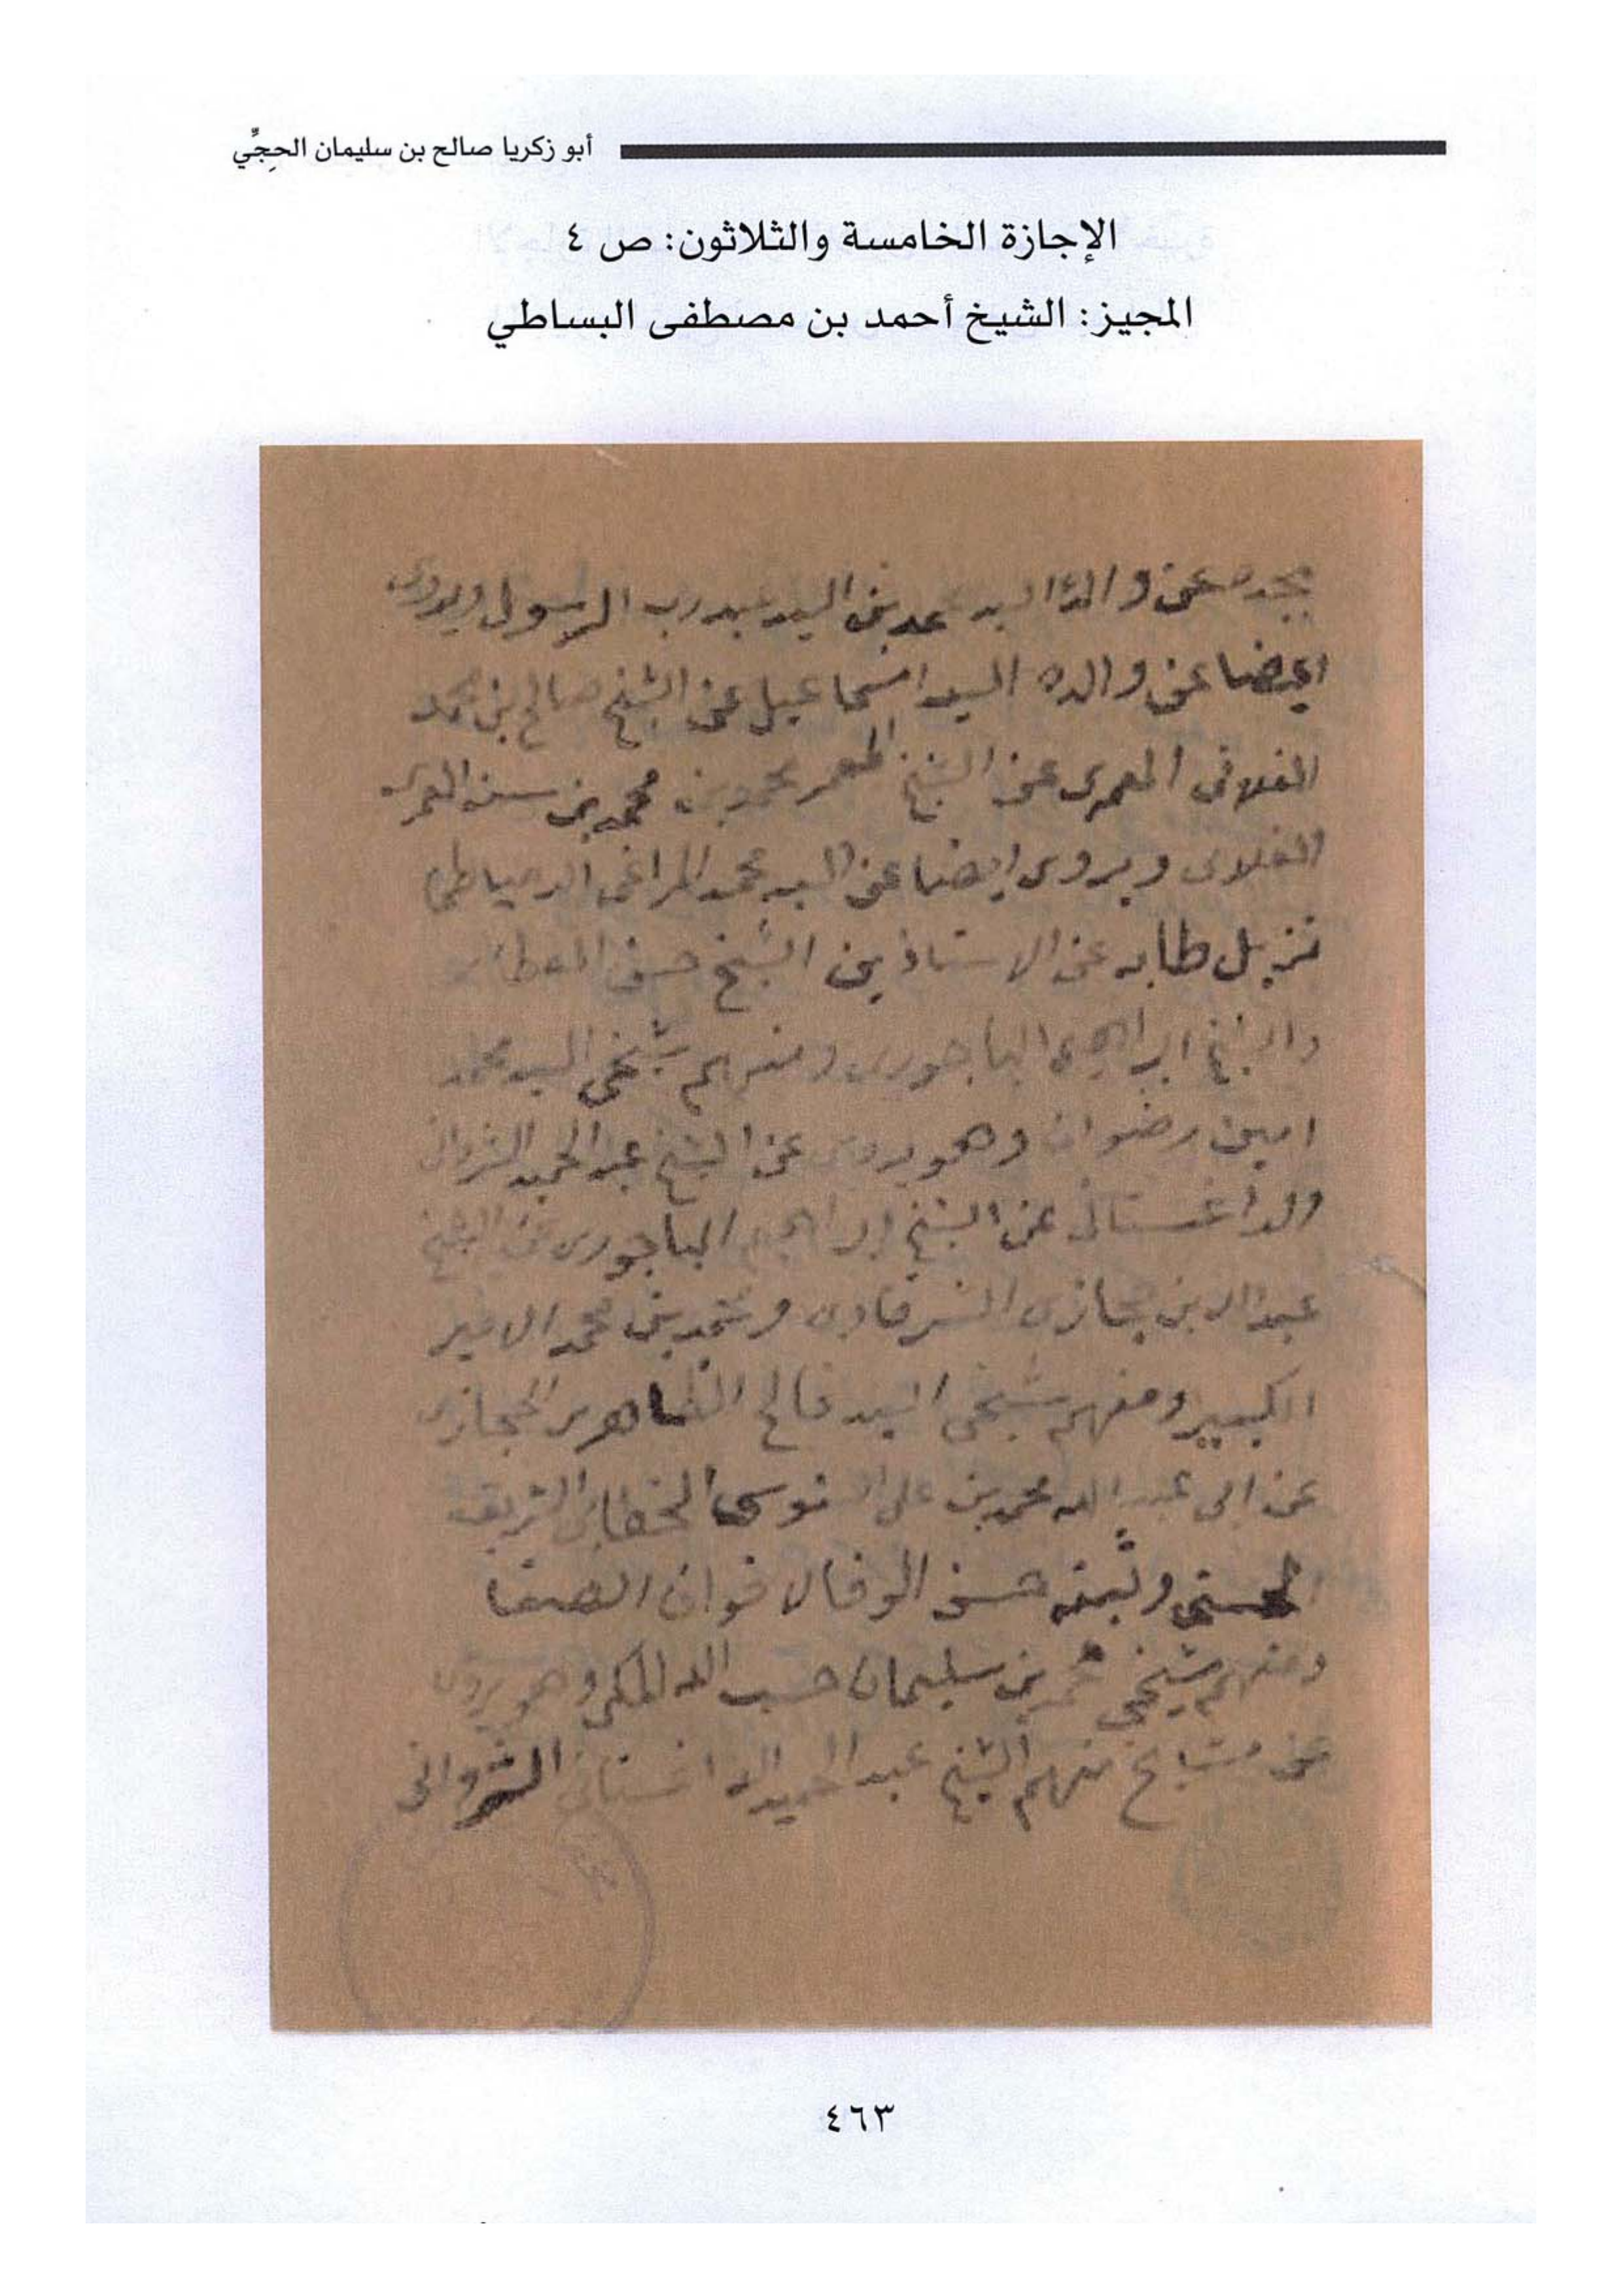 أبو زكريا صالح بن سليمان الحجِّي
الإجازة الخامسة والثلاثون: ص ٤
المجيز: الشيخ أحمد بن مصطفى البساطي
عن والده السيد محمد بن السيد عبد رب الرسول ويروى
ايضا عن والده السيد اسماعيل عن الشيخ صالح بن محمد
الفلانى العمرى عن الشيخ المعمر محمد بن محمد بن سنه العمرى
الفلانى ويروى ايضا عن السيد محمد المراغى الدمياطى
نزيل طابه عن الاستاذين الشيخ حسن العطار
والشيخ ابراهيم الباجورى ومنهم شيخى السيد محمد
امين رضوان وهو يروى عن الشيخ عبد الحميد الشروانى
والداغستانى عن الشيخ ابراهيم الباجورى عن الشيخ
عبد الله بن حجازى الشرقاوى ومحمد بن محمد الامير
الكبير ومنهم شيخى السيد فالح الظاهرى الحجازى
عن ابى عبد الله محمد بن على السنوسى الخطابى الشريف
الحسنى وثبته حسن الوفا لاخوان الصفا
ومنهم شيخى محمد بن سليمان حسب الله المكى وهو يروى
عن مشايخ منهم الشيخ عبد الحميد الداغستانى الشروانى
٤٦٣